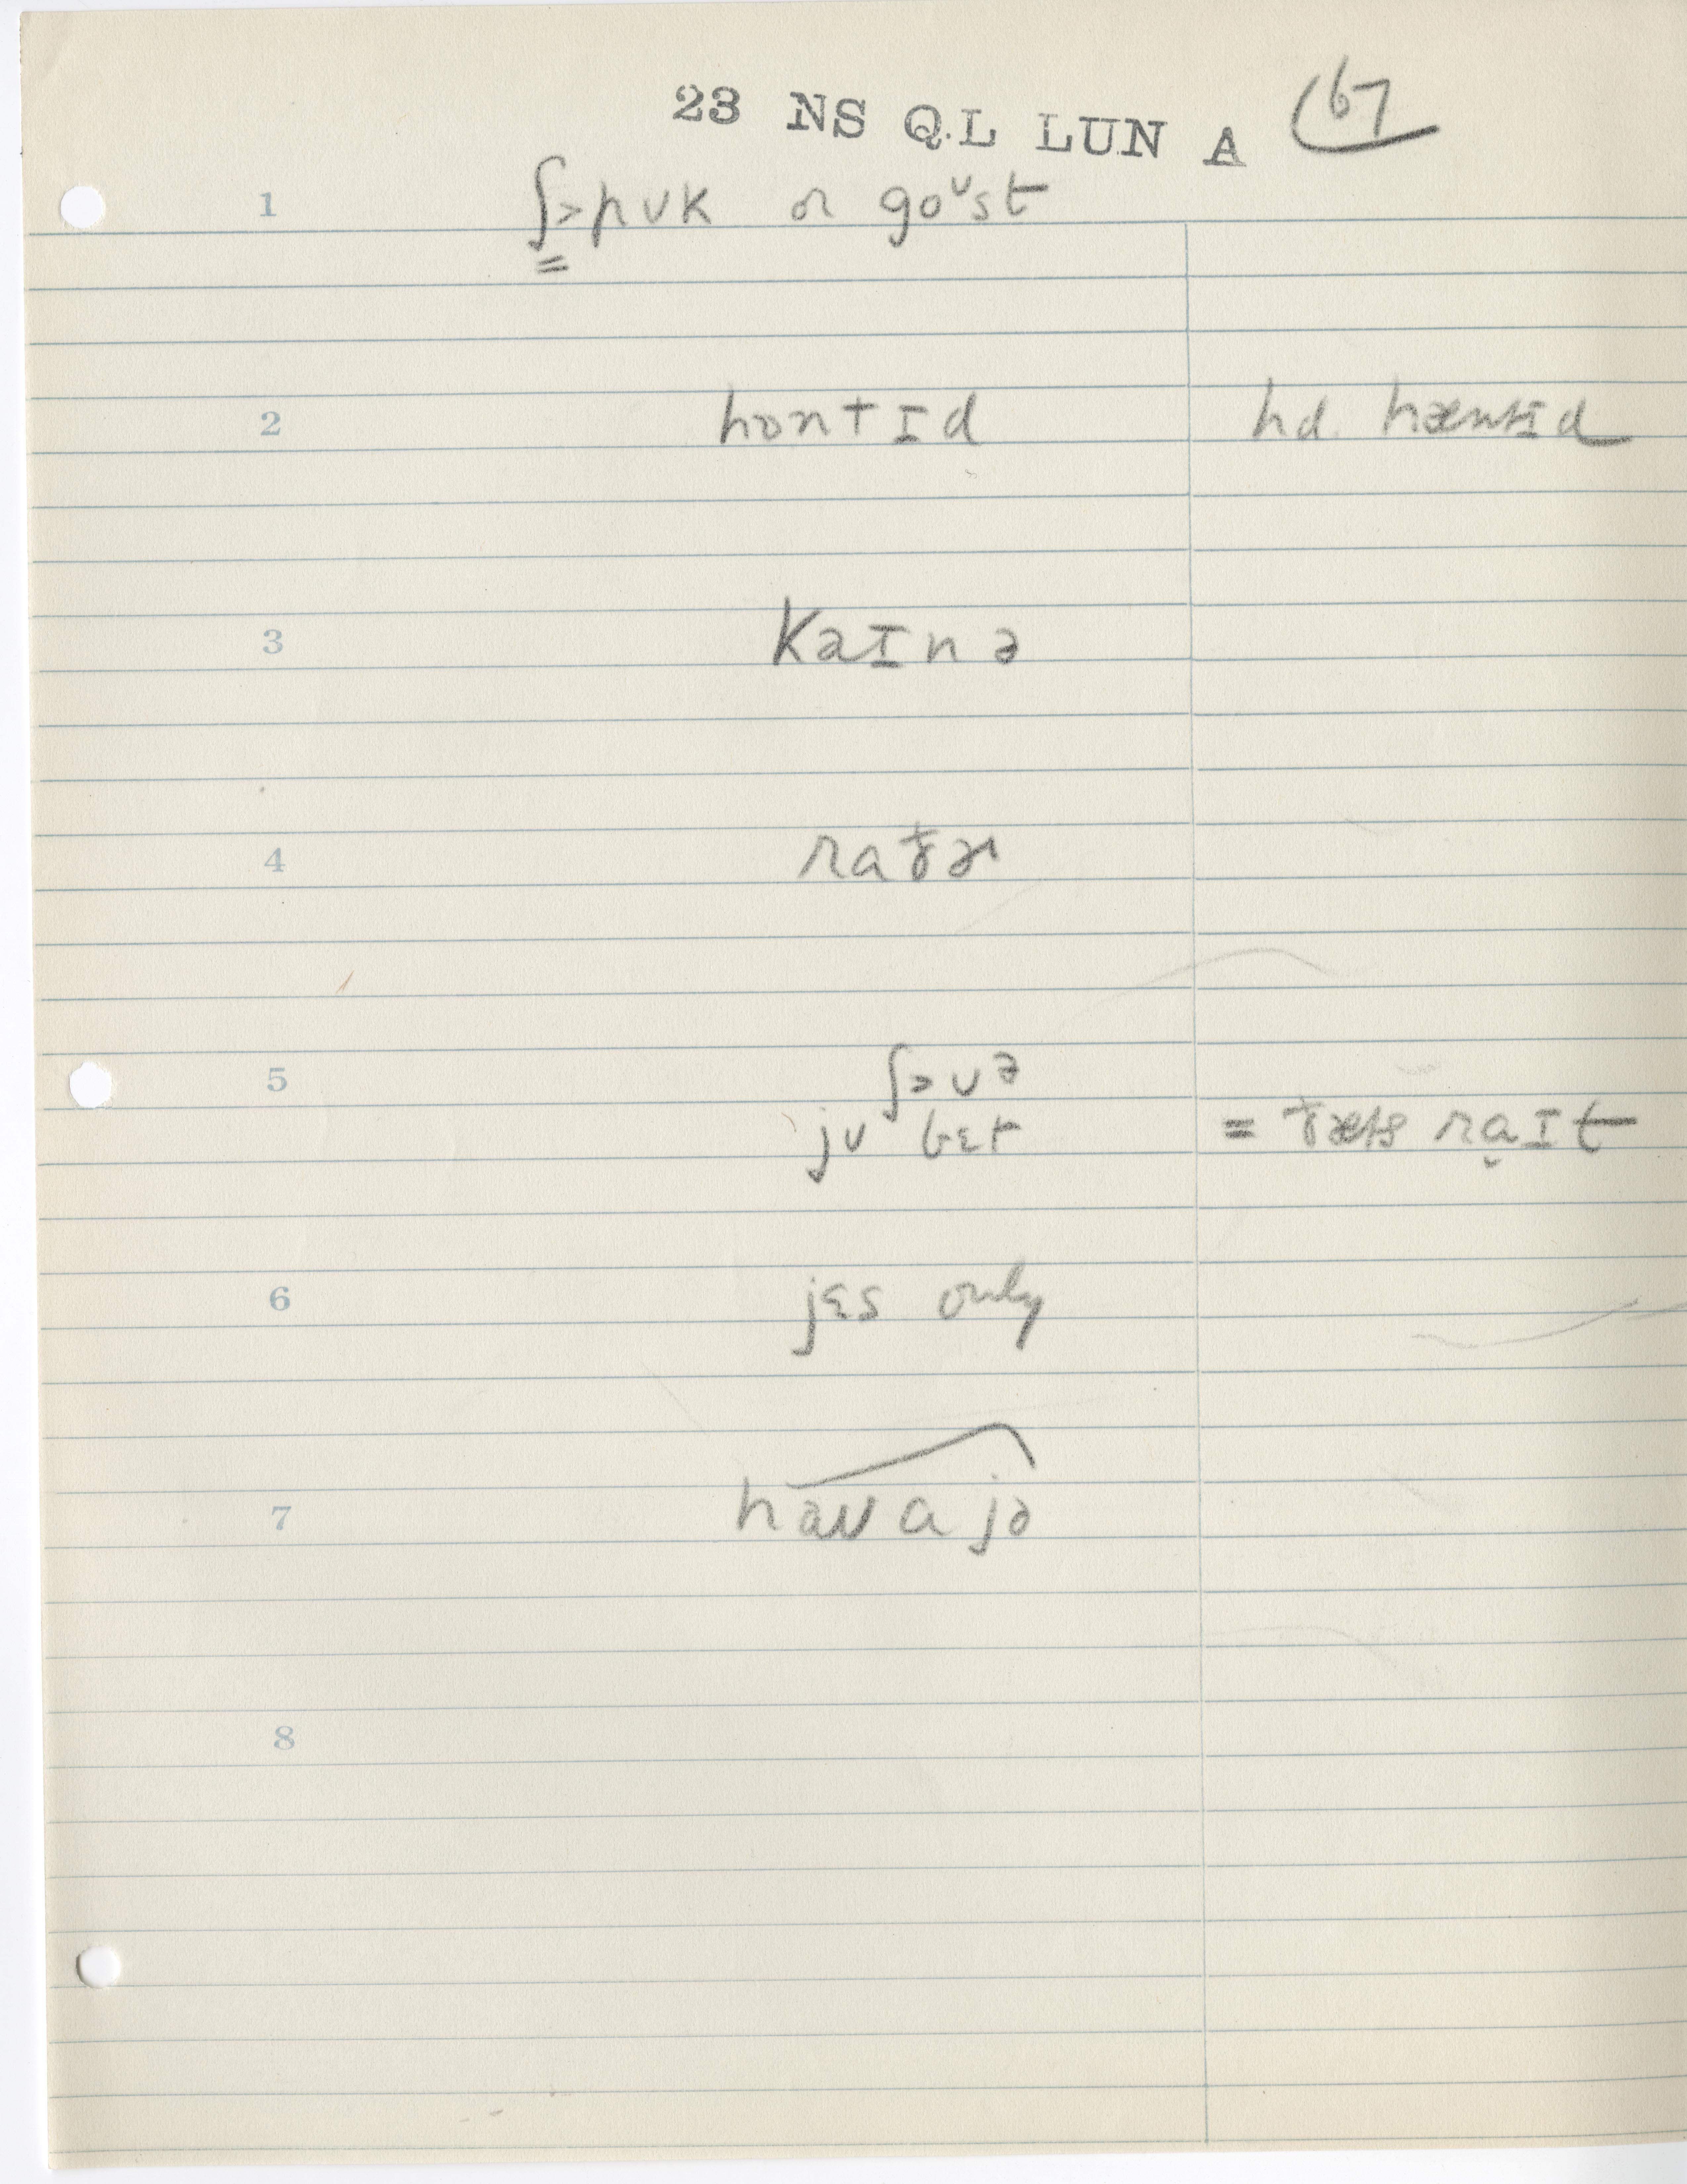 23 NS QL LUN A 67
1 ʃ>pʊk or goᴜst
2 hɒntɪd hd. hæntɪd
3 kaɪnə
4 raðɚ
ʃɔʊə
5 jʊ bɛt = ðæts ra̬ɪt
6 jɛs only
7 haʊ a jə
8